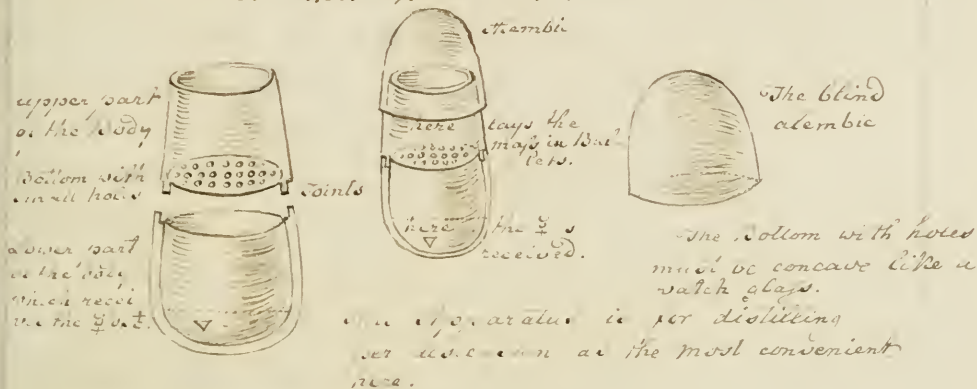 Alembic
upper part
of the Body
Bottom with
small holes
Joints
Lower part
of the body
which recei
the
here lays the
mass in Bul
lets.
here the ☿ is
received.
▽
▽
The blind
alembic
The Bottom with holes
must be concave like a
watch glass.
apparatus is for distilling
per as the most convenient